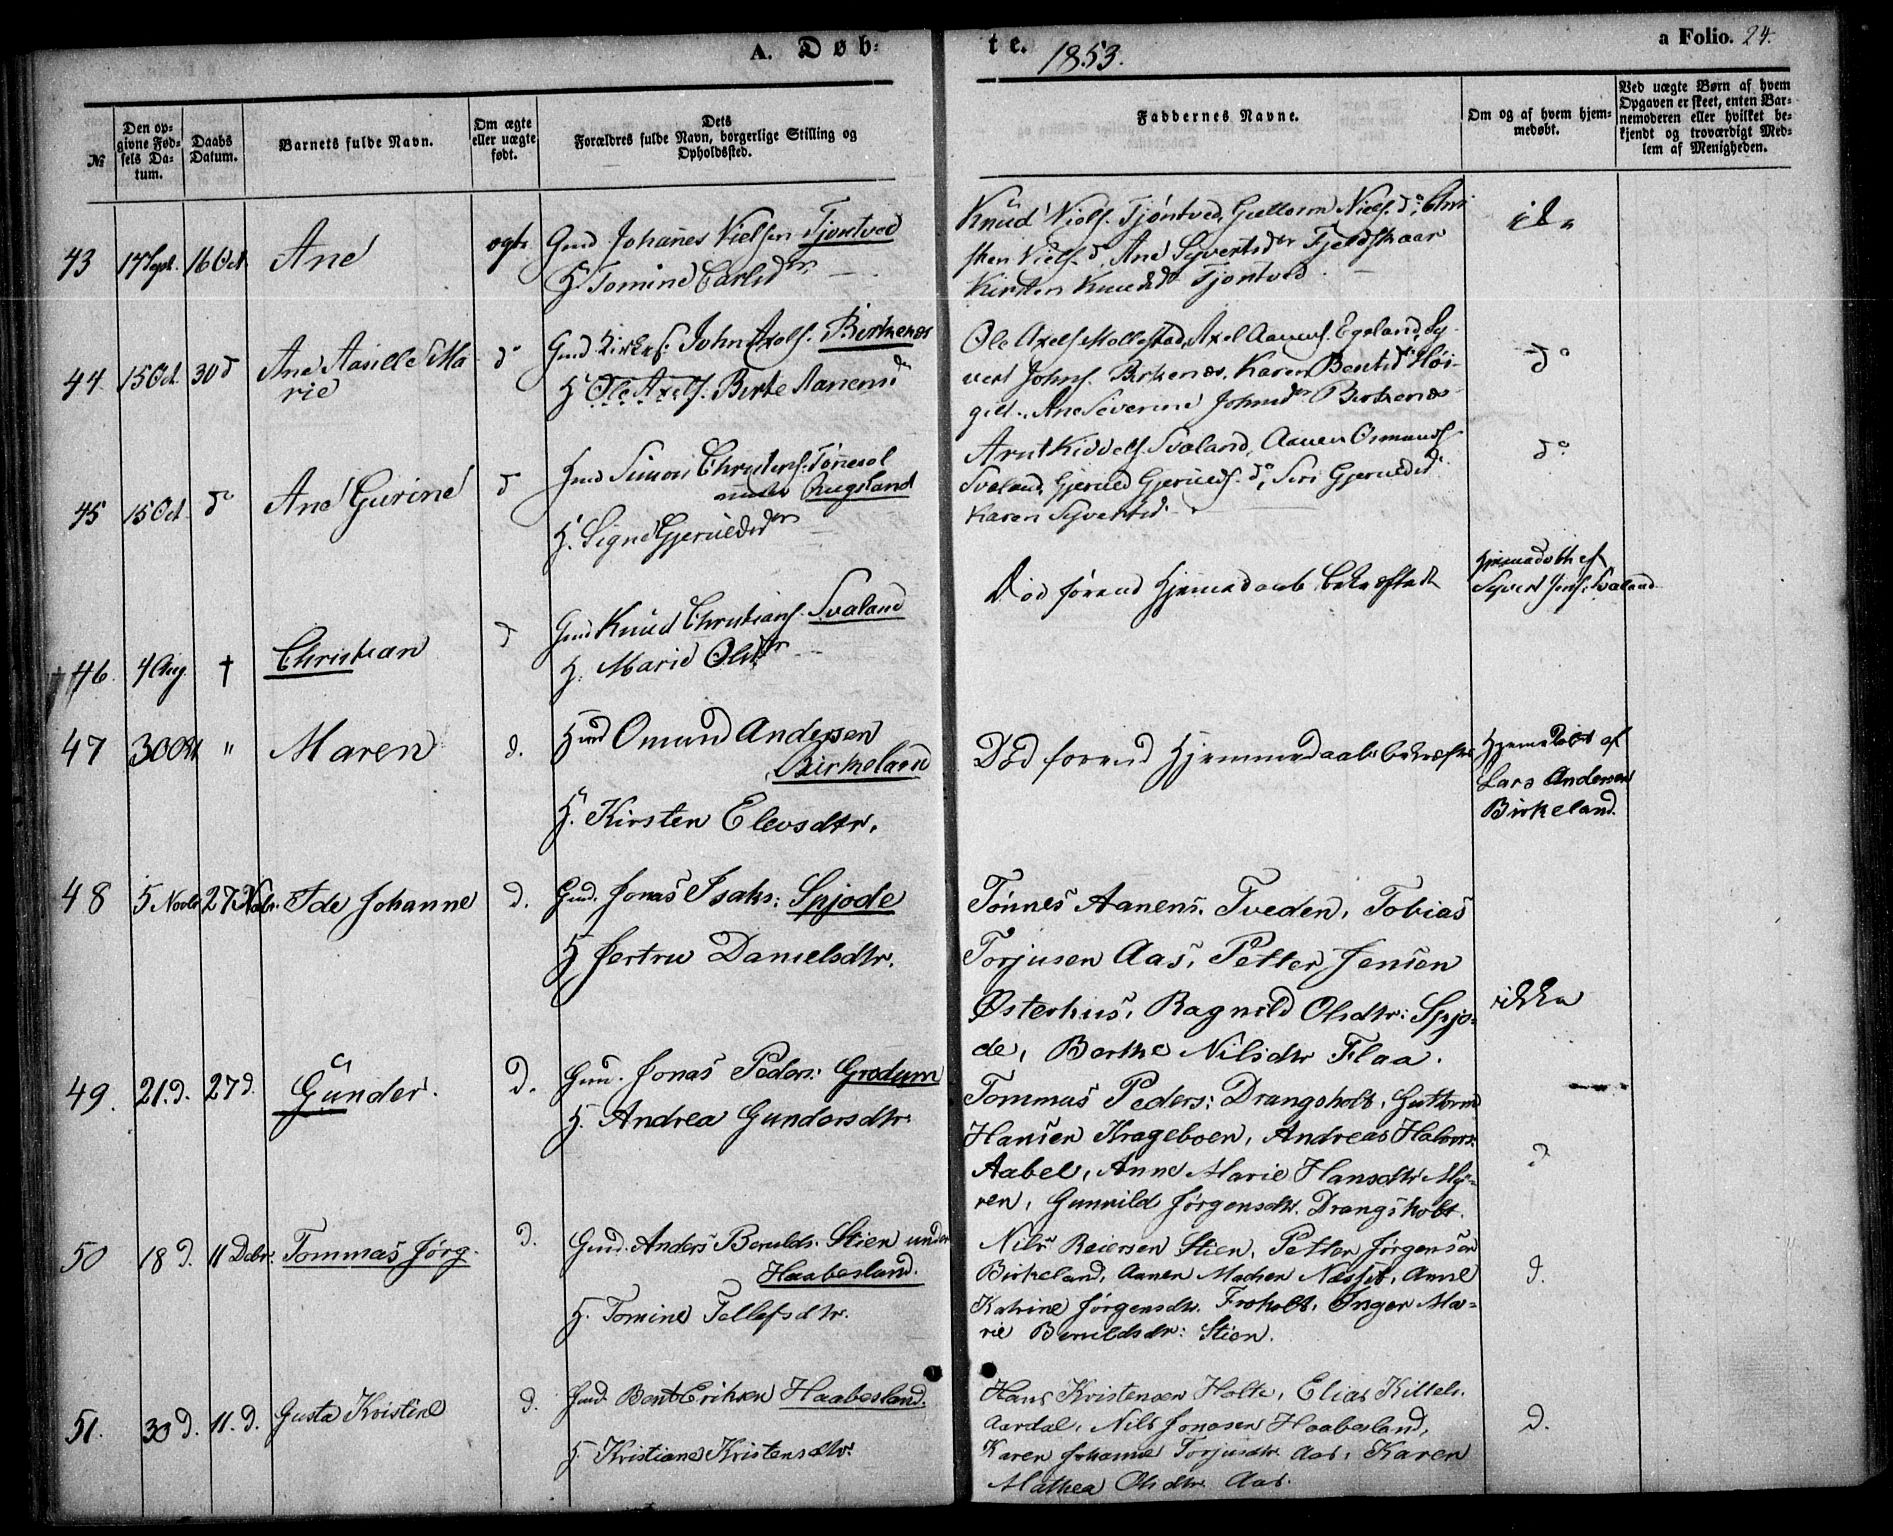 A. Døb-
te. 1853.
a Folio. 24.
№
Den op-
givne Fød-
sels Da-
tum.
Daabs
Datum.
Barnets fulde Navn.
Om ægte
eller uægte
født.
Dets
Forældres fulde Navn, borgerlige Stilling og
Opholdssted.
Faddernes Navne.
Om og af hvem hjem-
medøbt.
Ved uægte Børn af hvem
Opgaven er skeet, enten Bar-
nemoderen eller hvilket be-
kjendt og troværdigt Med-
lem af Menigheden.
43 17 Sept. 16 Oct. Ane ægte
Gmd Johannes Nielsen Tjøntved
H. Tomine Carlsdtr
Knud Niels. Tjøntved, Guttorm Niels. do, Chri
sten Niels. do, Ane Syvertsdtr Fjeldskaar
Kirsten Knudsdtr Tjøntved
44 15 Oct. 30 d Ane Aasille Ma
rie do
Gmd Kirkes. John Axels. Birkenæs
H Ole Axels. Birte Aanensd
Ole Axels. Mollestad, Axel Aanens. Egeland, Sy-
vert Johns. Birkenæs, Karen Bentsd Høi-
gilt, Ane Severine Johnsdtr Birkenæs
do
45 15 Oct. do Ane Gurine d
Hmd Simon Christens. Tønnesøl
under Rugsland
H. Signe Gjeruldsdtr
Arut Kiddels. Svaland, Aanen Osmunds.
Svaland, Gjeruld Gjerulds. do, Siri Gjeruldsd
Karen Syvertsd
do
46. 4 Aug. † Christian d
Gmd Knud Christians. Svaland
H. Marie Olsdtr
Død førend Hjemmedaab bekræftedt
Hjemmedøbt af
Syvert Jens. Svaland
47 30 Oct " Maren d.
Hmd Omund Andersen
Birkeland
H. Kirsten Elevsdtr.
Død forend Hjemmedaab bekræftes
Hjemmedøbt af
Lars Andersen
Birkeland.
48 5 Novbr 27 Nobr. Ide Johanne d.
Gmd. Jonas Isaks: Spjode
H Jertru Danielsdtr.
Tønnes Aanens. Tveden, Tobias
Torjusen Aas, Petter Jensen
Østerhus, Ragnild Olsdtr: Spjo-
de, Berthe Nilsdtr Flaa.
ikke
49. 21. d. 27 d. Gunder. d.
Gmd. Jonas Peders: Grødum
H. Andrea Gundersdtr
Tommas Peders: Drangsholt, Guttorm
Hansen Krageboen, Andreas Halvors:
Aabel, Anne Marie Hansdtr My-
ren, Gunnild Jørgensdtr. Drangsholt.
d
50 18 d. 11 Debr. Tommas Jørg. d.
Gmd. Anders Berulds. Stien under
Haabesland.
H. Tomine Tellefsdtr.
Nils Reiersen Stien, Petter Jørgensen
Birkeland, Aanen Madsen Næsset, Anne
Katrine Jørgensdtr. Froholt, Inger Ma-
rie Beruldsdtr: Stien.
d.
51. 30 d. 11. d. Gusta Kristine d.
Gmd. Bent Eriksen Haabesland.
H. Kristiane Kristensdtr
Hans Kristensen Holte, Elias Kittels.
Aardal, Nils Jonasen Haabesland,
Karen Johanne Torjusdtr. Aas, Karen
Mathea Olsdtr. Aas.
d.